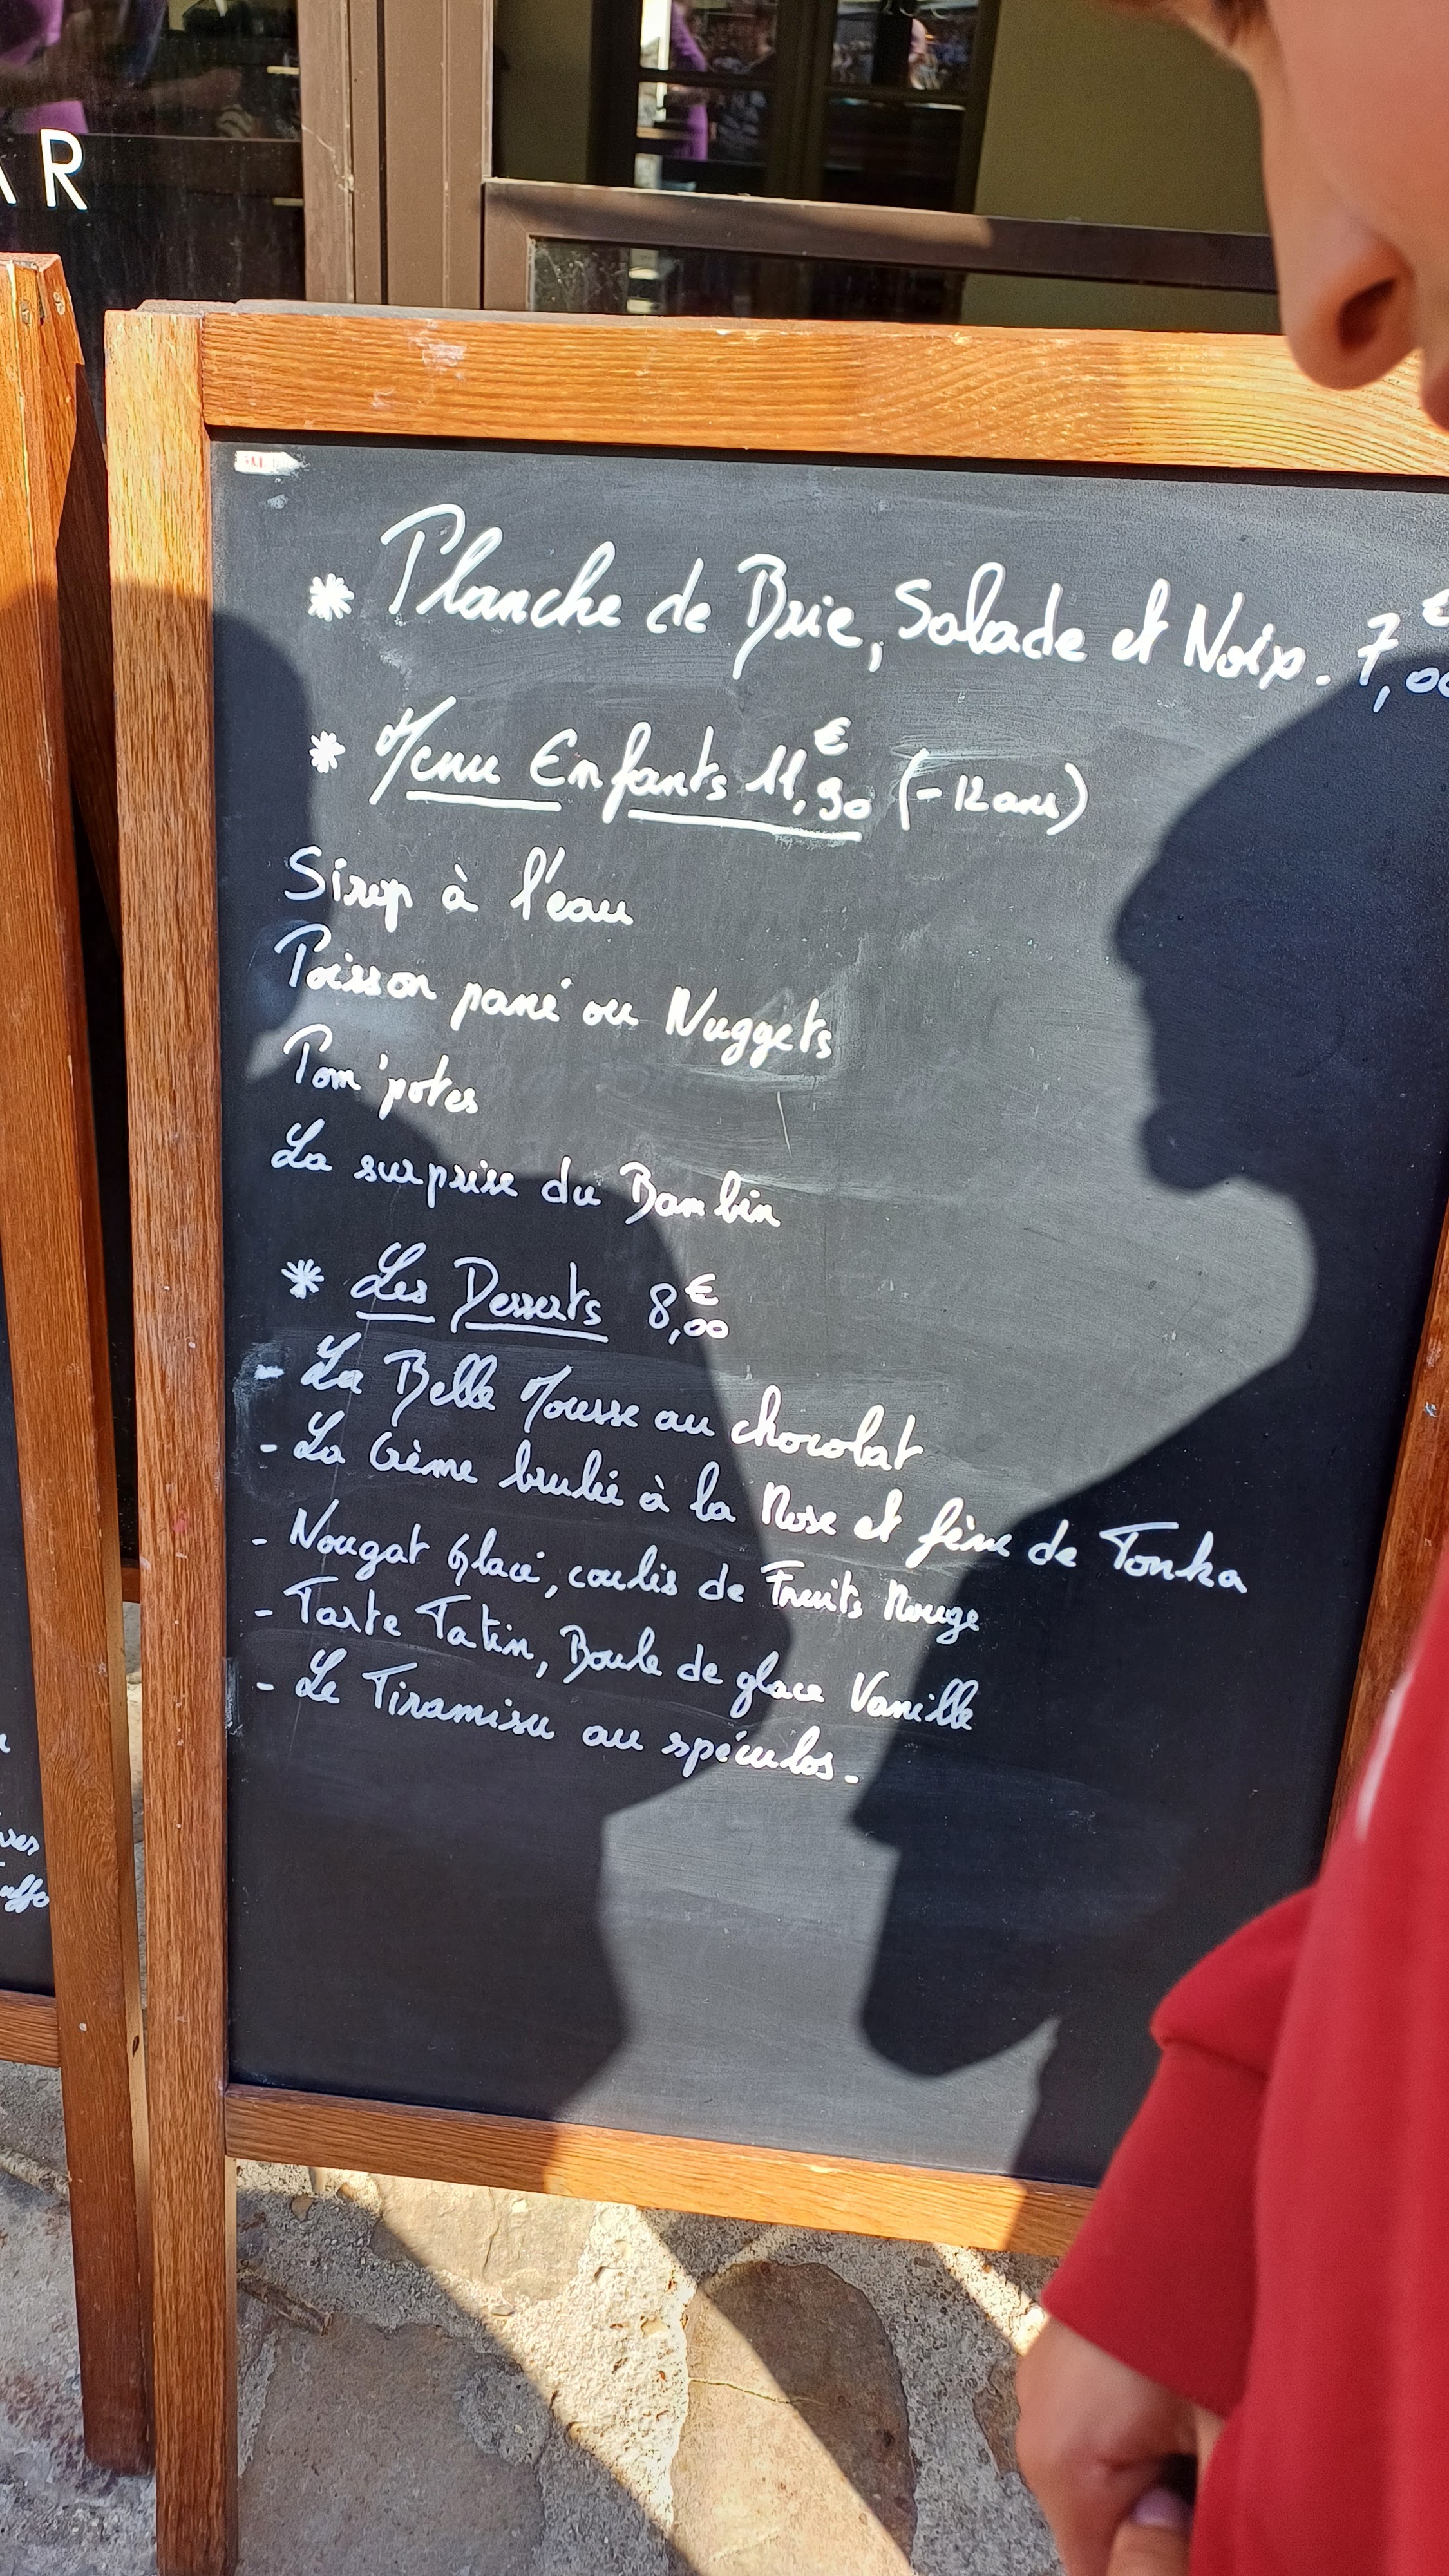 AR
* Planche de Brie, Salade et Noix. 7,00€
* Menu Enfants 11,90€ (-12 ans)
Sirop à l'eau
Poisson pané ou Nuggets
Pom'potes
La surprise du Bambin
* Les Desserts 8,00€
- La Belle Mousse au chocolat
- La Crème brulée à la Rose et fève de Tonka
- Nougat Glacé, coulis de Fruits Rouge
- Tarte Tatin, Boule de glace Vanille
- Le Tiramisu au spéculos.